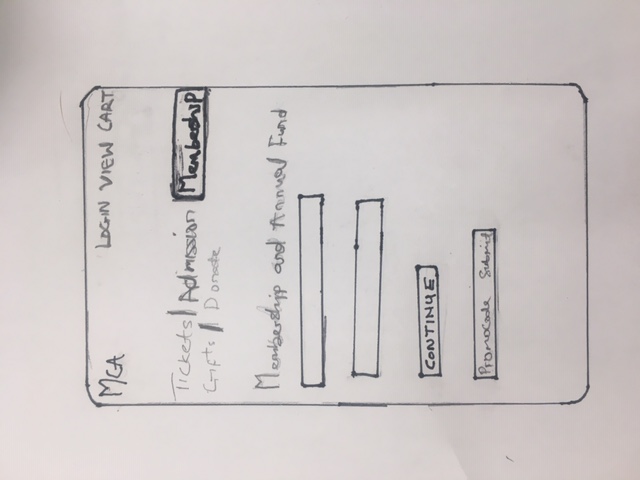 MCA LOGIN VIEW CART
Tickets | Admission Membership
Gifts | Donate
Membership and Annual Fund
CONTINUE
Promocode Submit